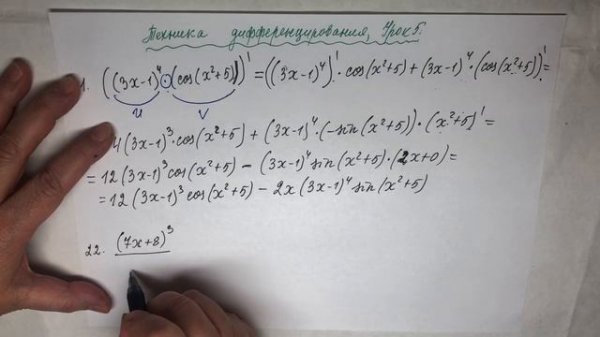 Техника дифференцирования, Урок 5.
1. ((3x-1)⁴·(cos(x²+5)))' = ((3x-1)⁴)'·cos(x²+5) + (3x-1)⁴·(cos(x²+5))' =
u v
4(3x-1)³·cos(x²+5) + (3x-1)⁴·(-sin(x²+5))·(x²+5)' =
= 12(3x-1)³cos(x²+5) - (3x-1)⁴sin(x²+5)·(2x+0) =
= 12(3x-1)³cos(x²+5) - 2x(3x-1)⁴sin(x²+5)
22. (7x+8)³